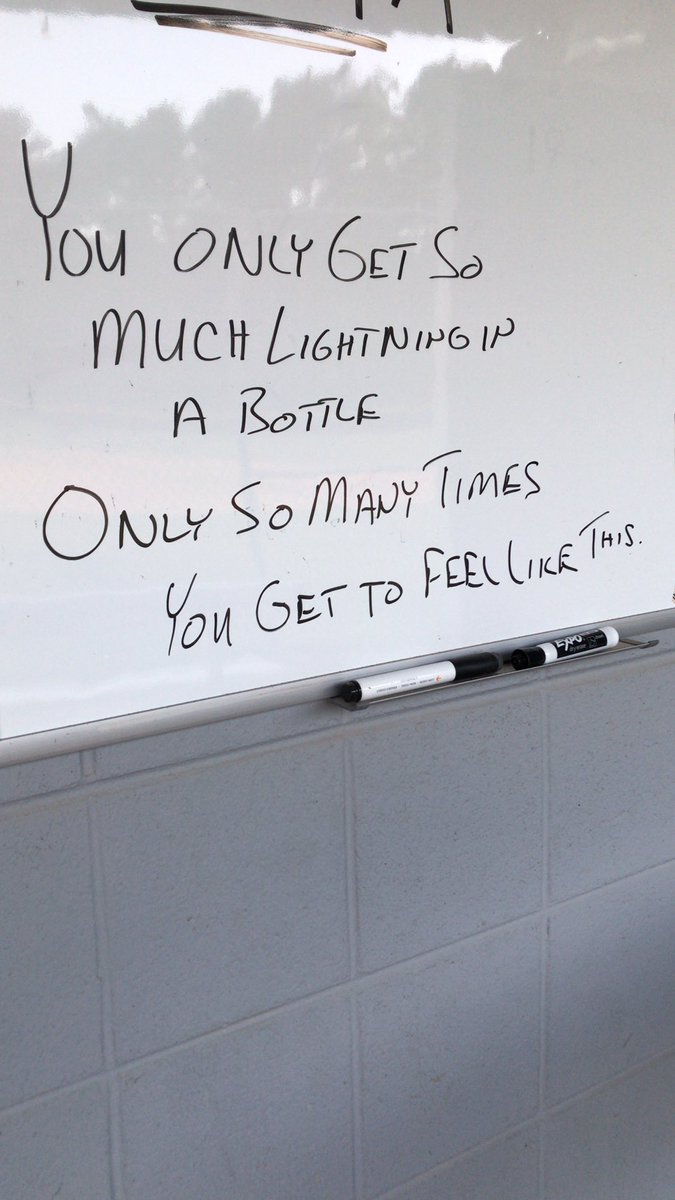 YOU ONLY GET SO
MUCH LIGHTNING IN
A BOTTLE
ONLY SO MANY TIMES
YOU GET TO FEEL LIKE THIS.
EXPO